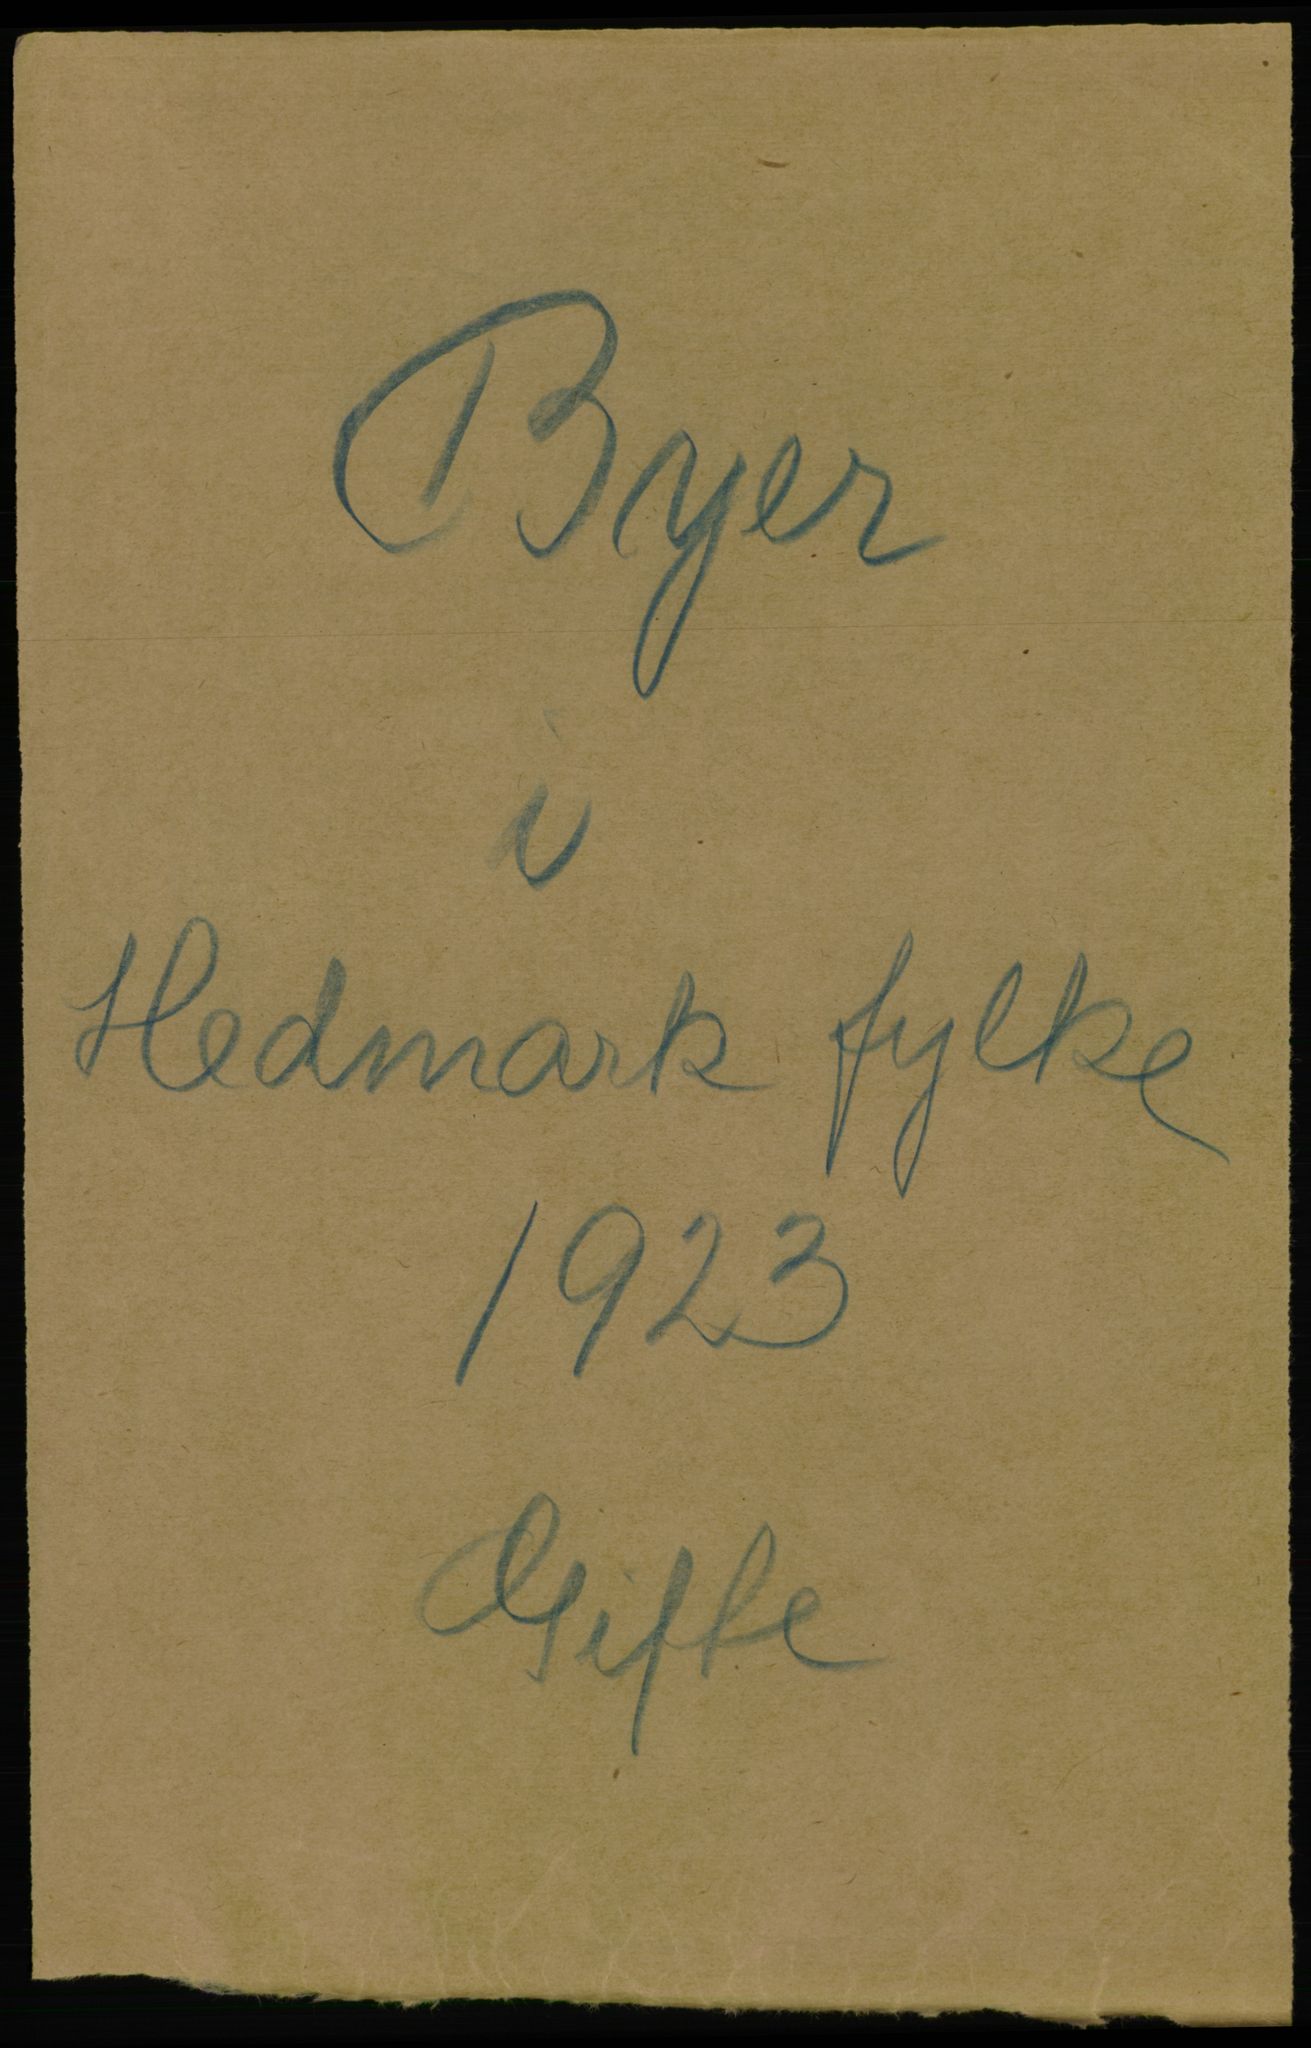 Byer
i
Hedmark fylke
1923
Gifte